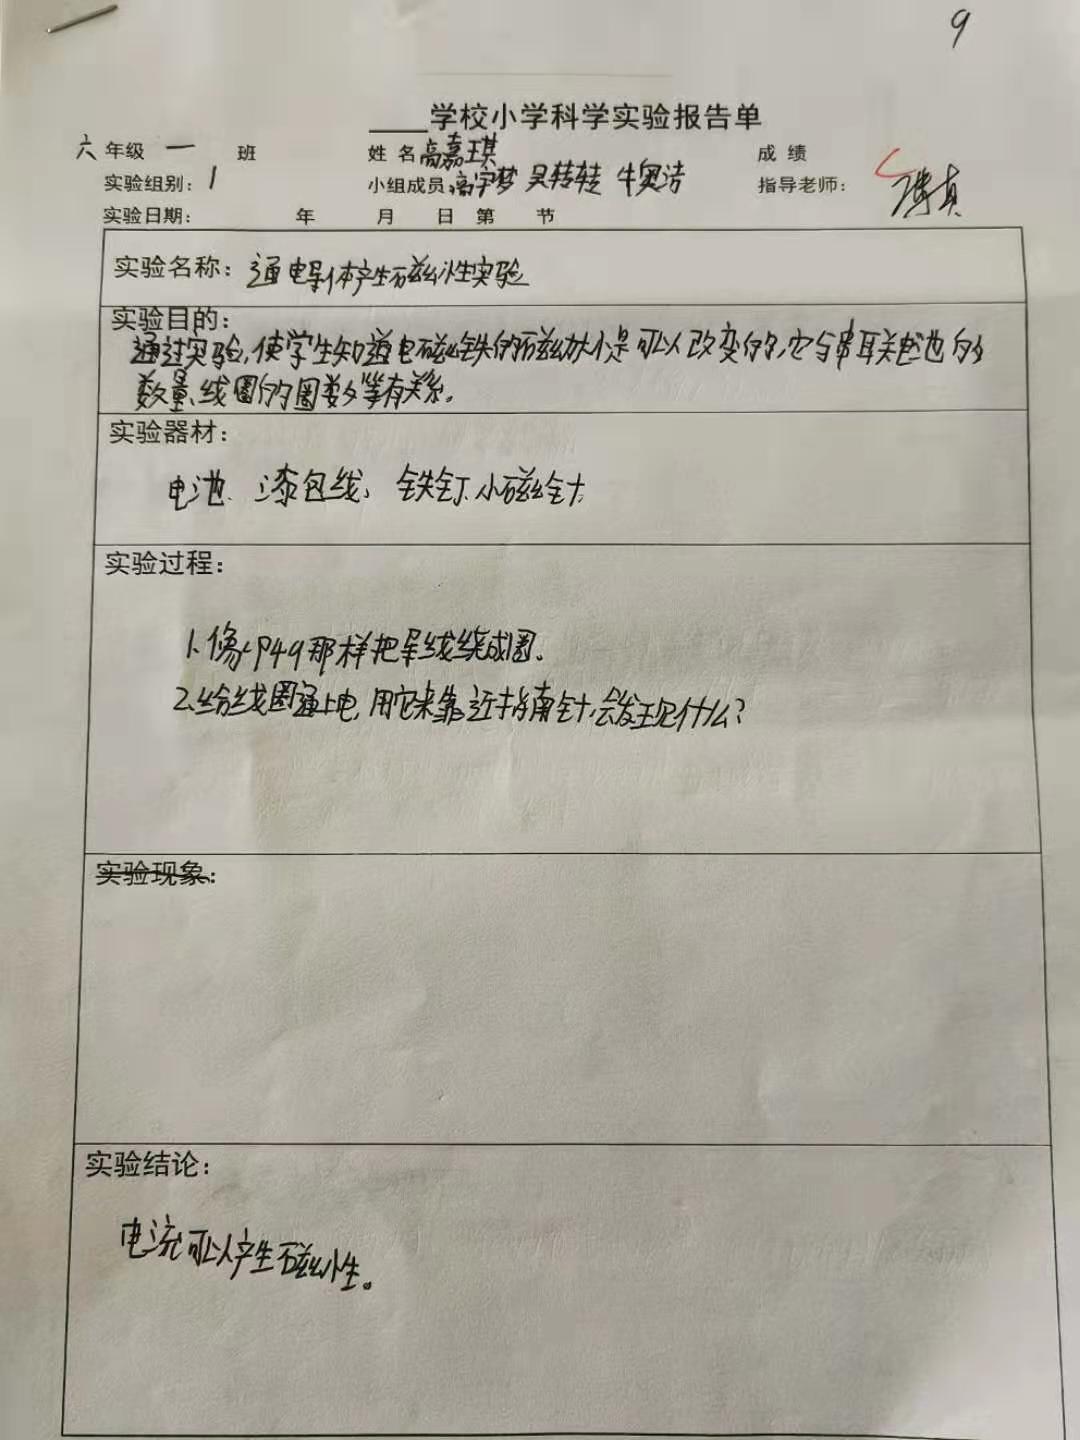 9
____学校小学科学实验报告单
六 年级 一 班 姓 名 高嘉琪 成 绩
实验组别: 1 小组成员: 高宇梦 吴转转 牛奥洁 指导老师:
实验日期: 年 月 日 第 节
实验名称: 通电导体产生磁性实验
实验目的:
通过实验,使学生知道电磁铁的磁力大小是可以改变的,它与串联电池的
数量、线圈的圈数等有关系。
实验器材:
电池、漆包线、铁钉、小磁针
实验过程:
1、像P49那样把导线绕成圈。
2、给线圈通上电,用它来靠近指南针,会发现什么?
实验现象:
实验结论:
电流可以产生磁性。